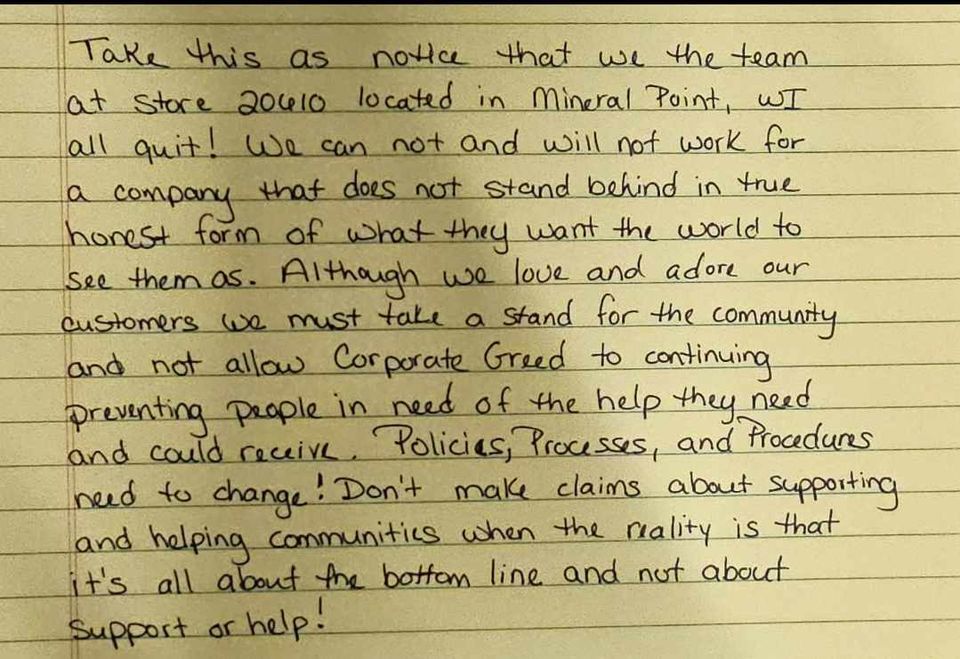 Take this as notice that we the team
at store 20610 located in Mineral Point, WI
all quit! We can not and will not work for
a company that does not stand behind in true
honest form of what they want the world to
see them as. Although we love and adore our
customers we must take a stand for the community
and not allow Corporate Greed to continuing
preventing people in need of the help they need
and could receive. Policies, Processes, and Procedures
need to change! Don't make claims about supporting
and helping communities when the reality is that
it's all about the bottom line and not about
support or help!